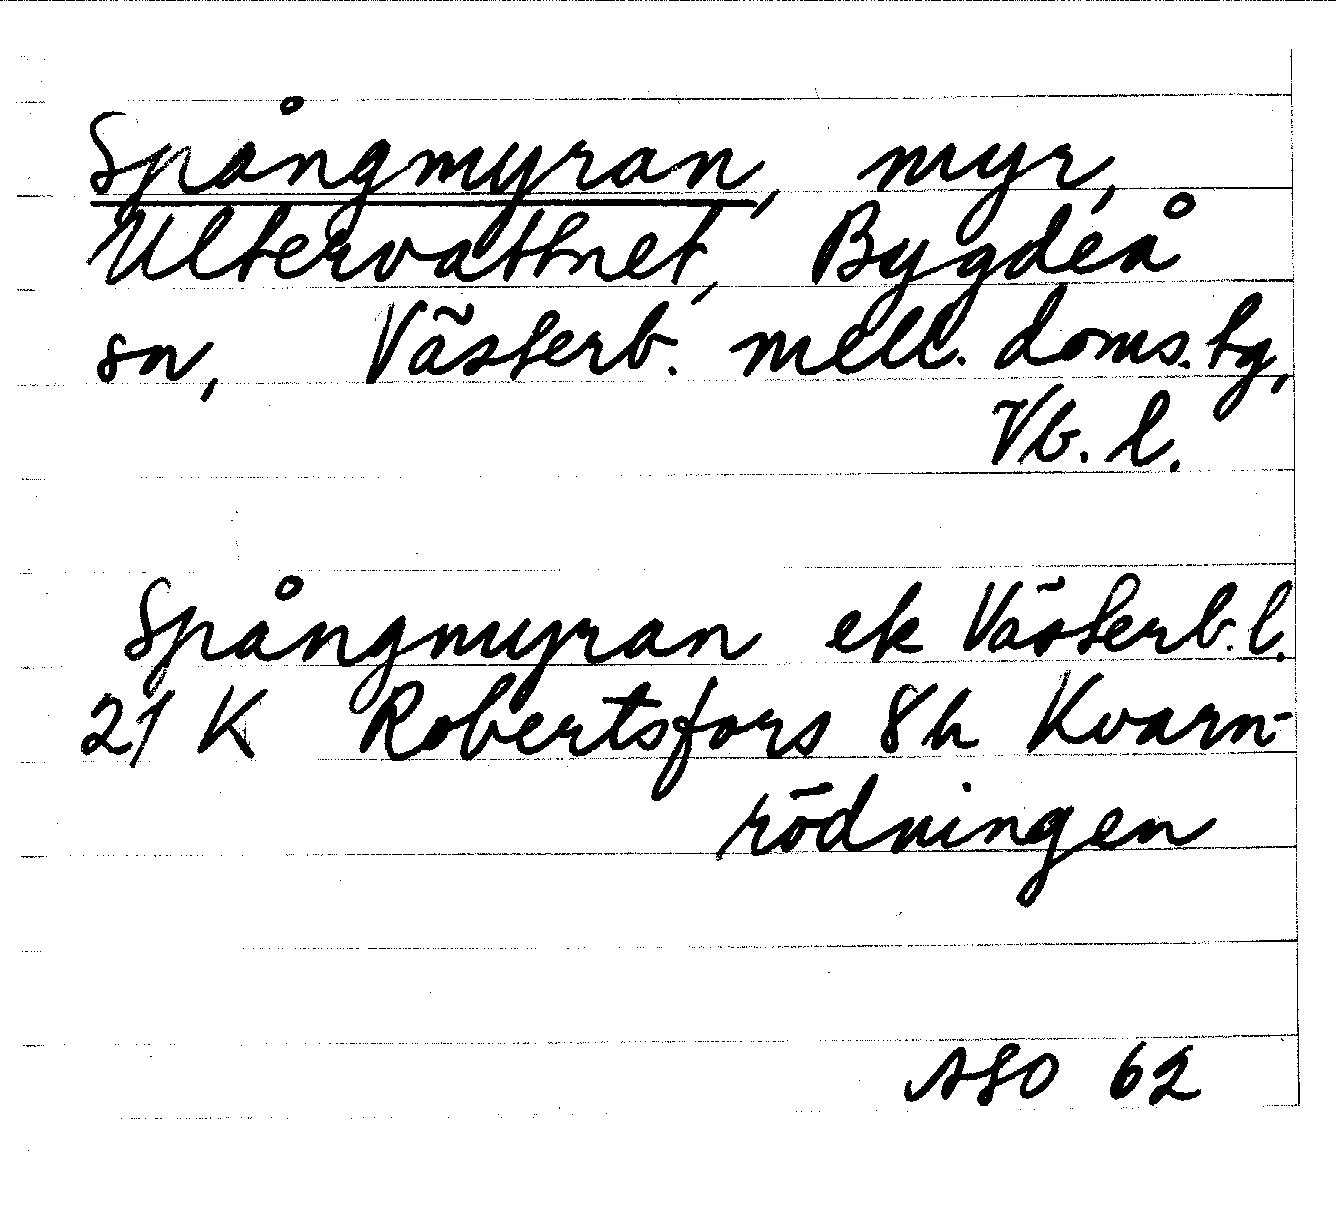 Spångmyran, myr,
Ultervattnet, Bygdeå
sn, Västerb. mell. doms. tg,
Vb. l.
Spångmyran ek Västerb. l.
21 K Robertsfors 8h Kvarn-
rödningen
ASO 62